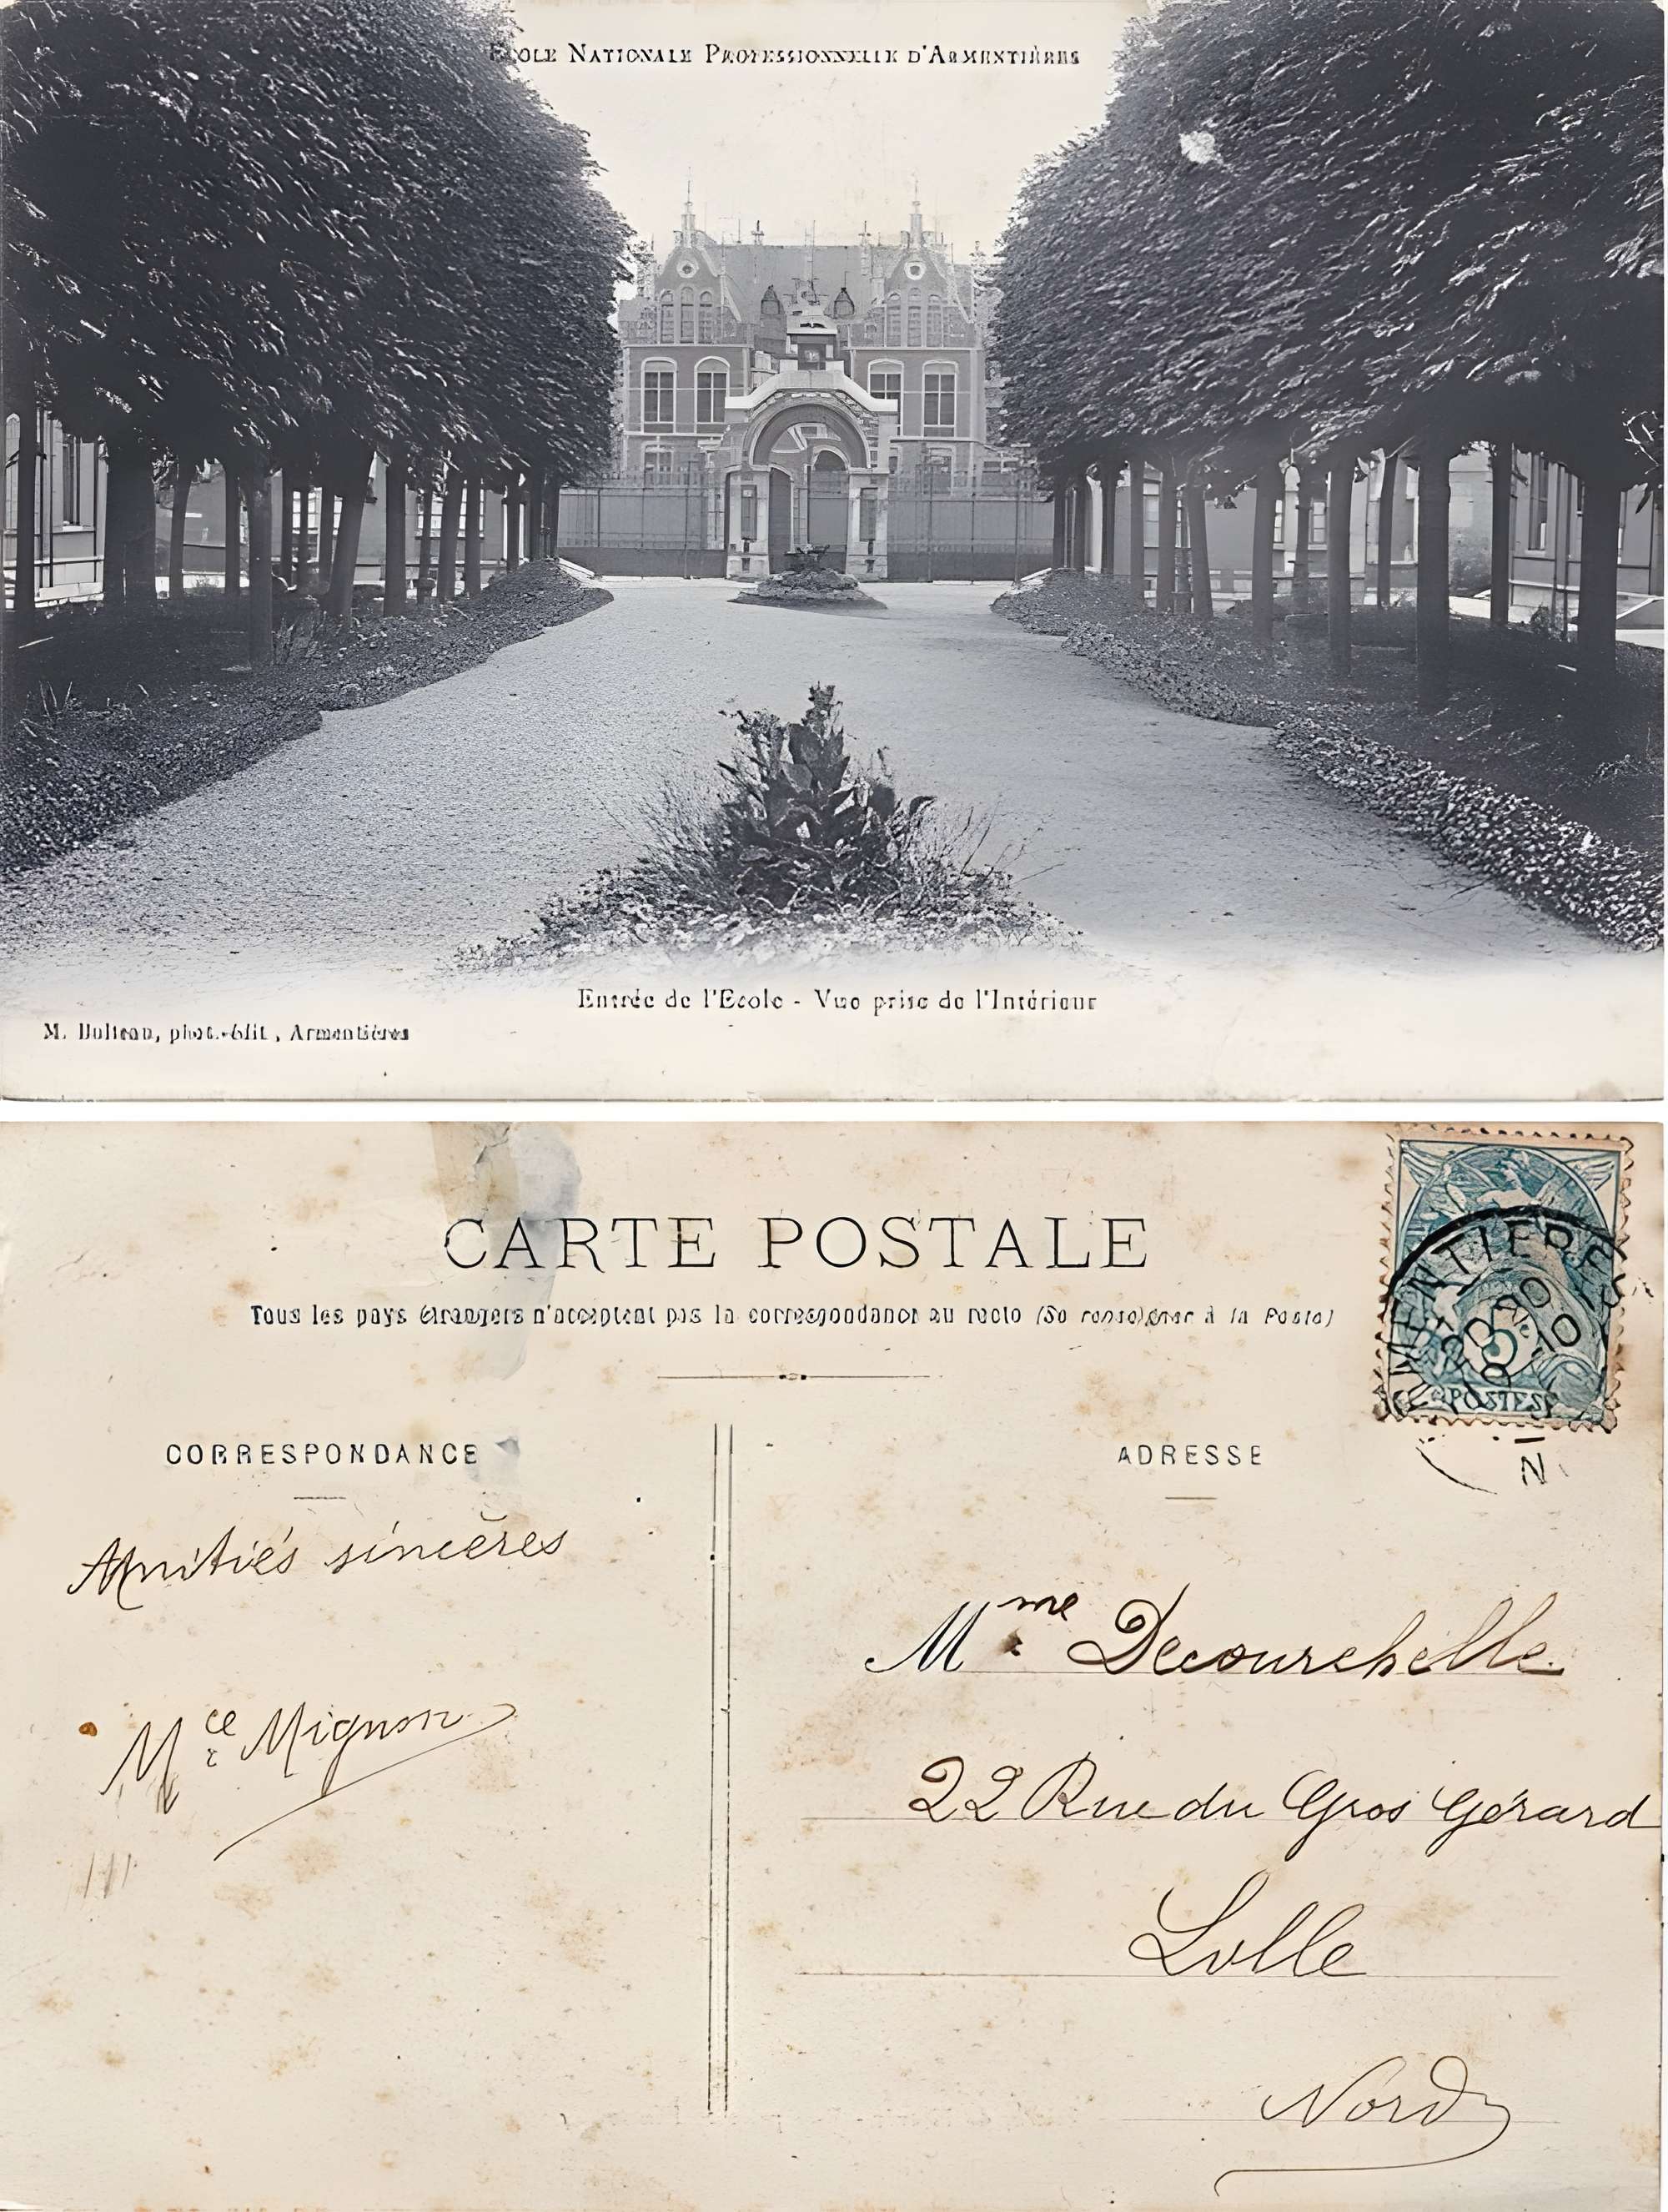 ÉCOLE NATIONALE PROFESSIONNELLE D'ARMENTIÈRES
Entrée de l'Ecole - Vue prise de l'Intérieur
M. Bulteau, phot.-édit., Armentières
CARTE POSTALE
Tous les pays étrangers n'acceptent pas la correspondance au recto (Se renseigner à la Poste)
CORRESPONDANCE
ADRESSE
Amitiés sincères
Mce Mignon
Mme Decourchelle
22 Rue du Gros Gérard
Lille
Nord
POSTES